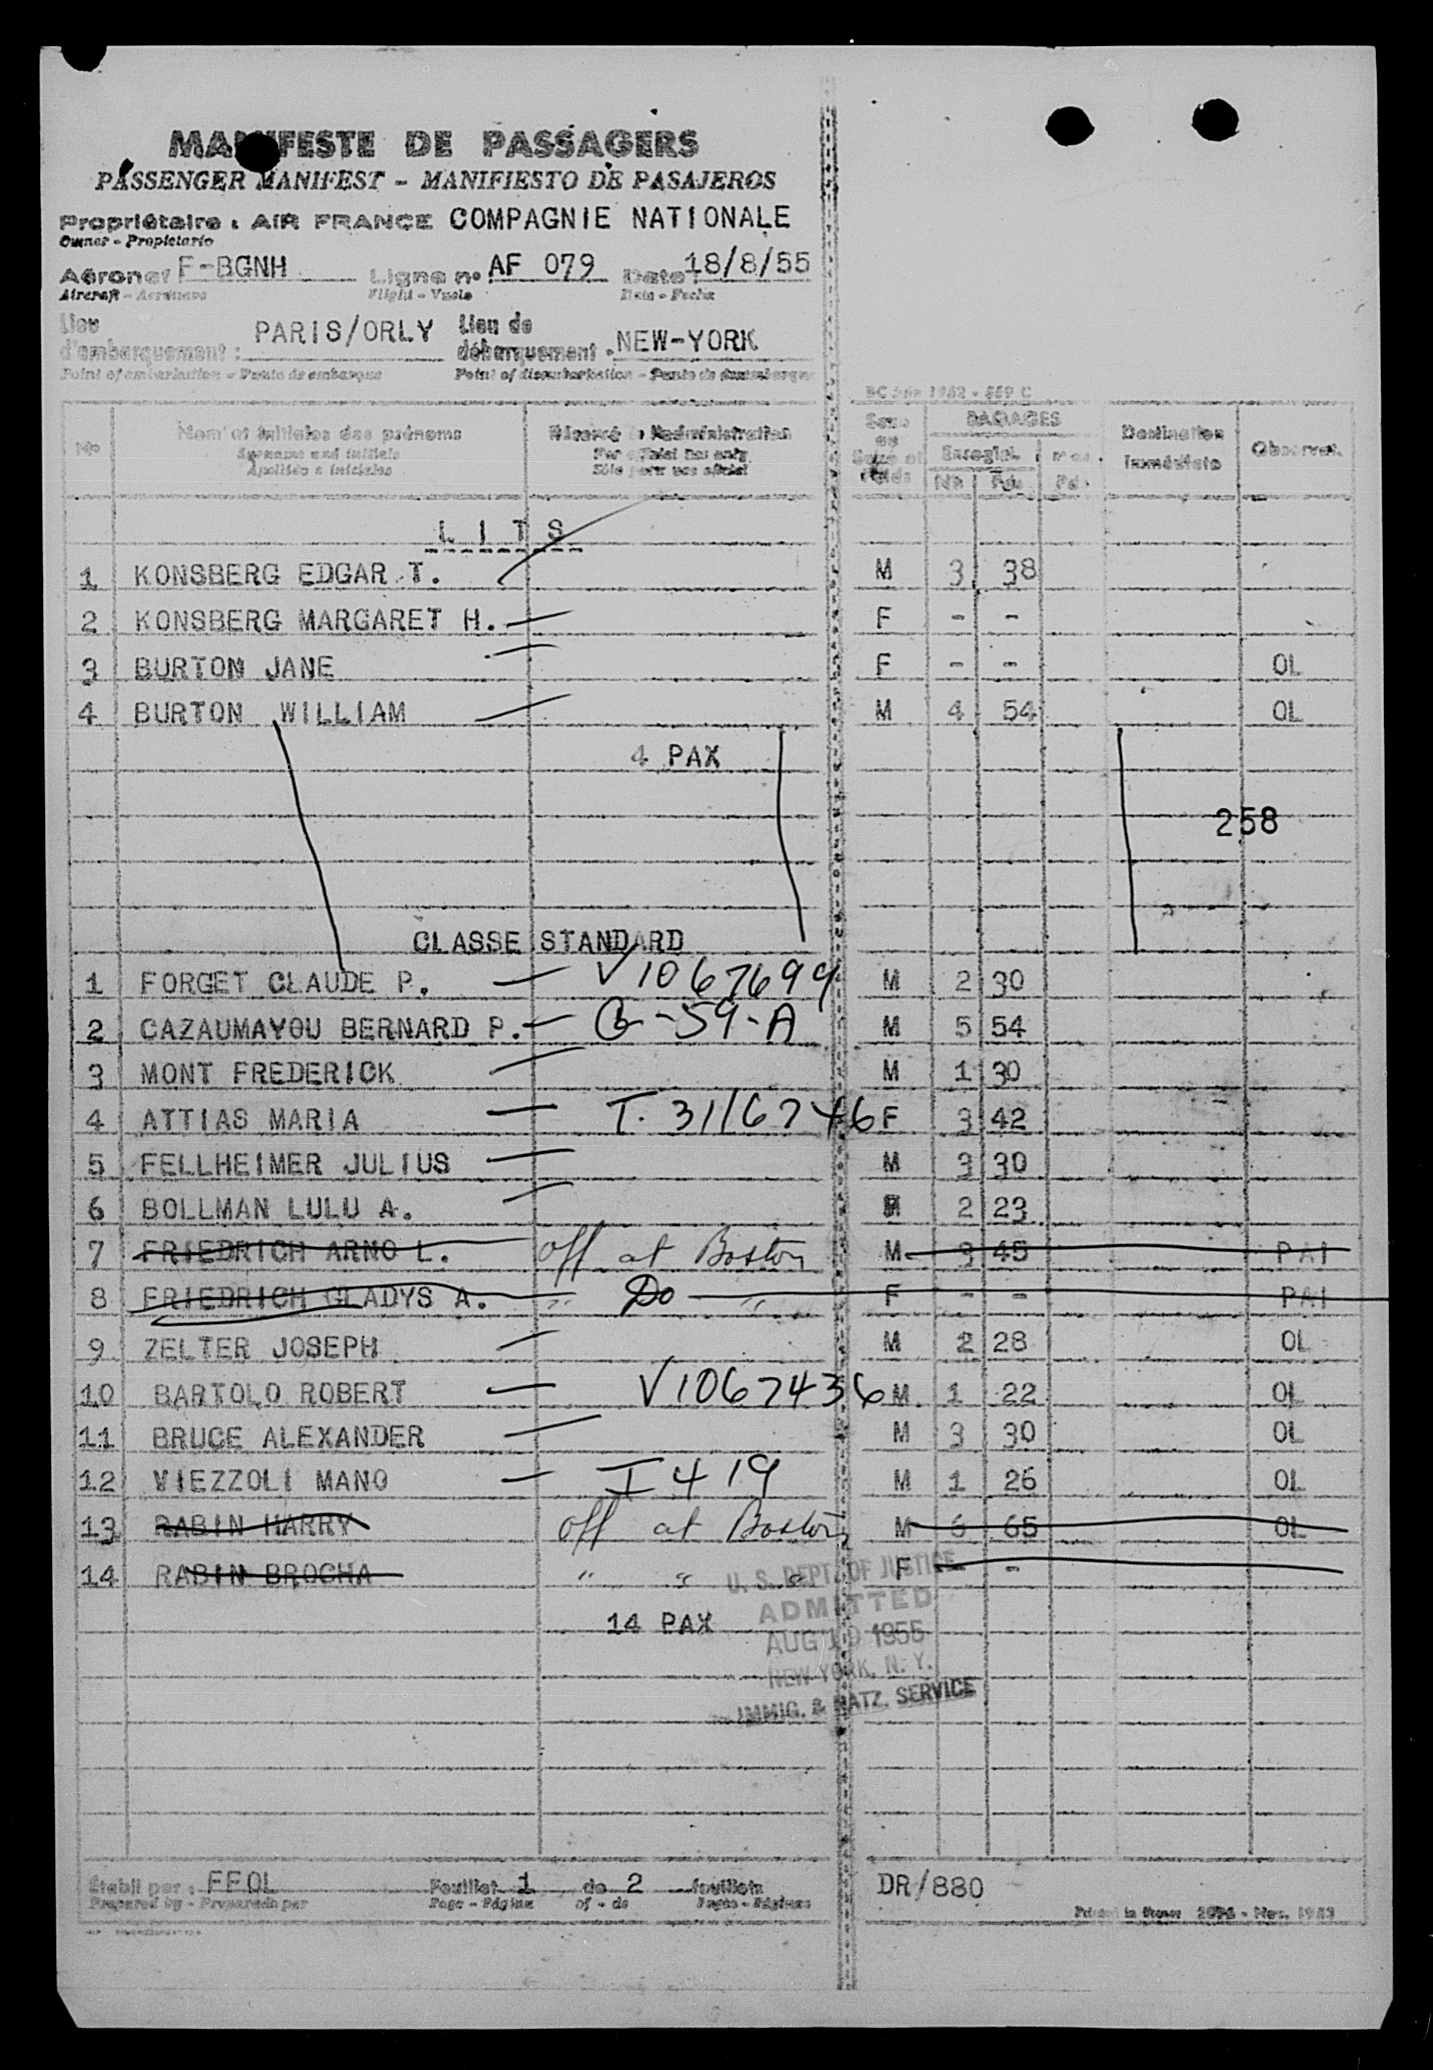 MANIFESTE DE PASSAGERS
PASSENGER MANIFEST - MANIFIESTO DE PASAJEROS
Propriétaire : AIR FRANCE COMPAGNIE NATIONALE
Owner - Propietario
Aéronef F-BGNH Ligne n° AF 079 Date 18/8/55
Aircraft - Aeronave Flight - Vuelo Date - Fecha
Lieu d'embarquement : PARIS/ORLY Lieu de débarquement : NEW-YORK
Point of embarkation - Punto de embarque Point of disembarkation - Punto de desembarque
N° Nom et initiales des prénoms Réservé à l'administration Sexe BAGAGES Destination Observat.
Surname and initials For official use only ou Enregist. immédiate
Apellido e iniciales Sólo para uso oficial Sexe et Poids Nb Pds Pd
L I T S
1 KONSBERG EDGAR T. M 3 38
2 KONSBERG MARGARET H. F - -
3 BURTON JANE F - - OL
4 BURTON WILLIAM M 4 54 OL
4 PAX
258
CLASSE STANDARD
1 FORGET CLAUDE P. V1067699 M 2 30
2 CAZAUMAYOU BERNARD P. G-59-A M 5 54
3 MONT FREDERICK M 1 30
4 ATTIAS MARIA T. 3116746 F 3 42
5 FELLHEIMER JULIUS M 3 30
6 BOLLMAN LULU A. 2 23
7 FRIEDRICH ARNO L. off at Boston M 3 45 PAI
8 FRIEDRICH GLADYS A. " Do " F - - PAI
9 ZELTER JOSEPH M 2 28 OL
10 BARTOLO ROBERT V1067436 M 1 22 OL
11 BRUCE ALEXANDER M 3 30 OL
12 VIEZZOLI MANO I 419 M 1 26 OL
13 RABIN HARRY off at Boston M 6 65 OL
14 RABIN BROCHA " " " F - -
14 PAX
U. S. DEPT. OF JUSTICE
ADMITTED
AUG 19 1955
NEW YORK, N. Y.
IMMIG. & NATZ. SERVICE
Établi par : FFOL Feuillet 1 de 2 feuillets DR/880
Prepared by - Preparado por Page - Página of - de Pages - Páginas